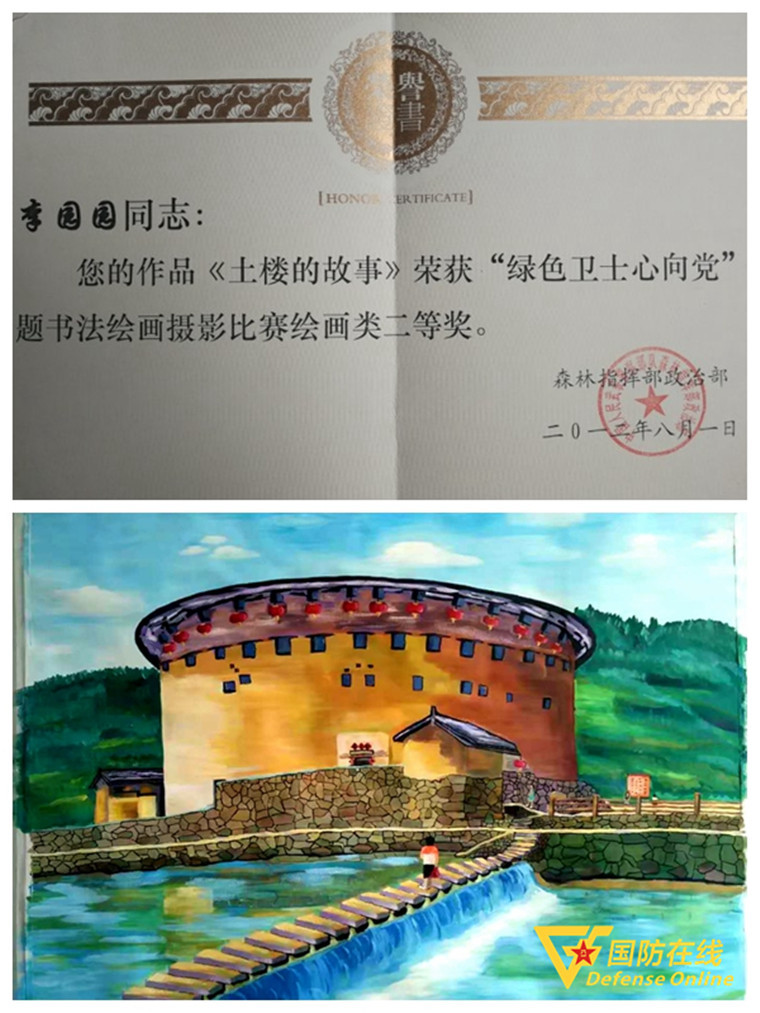 譽
書
[HONOR CERTIFICATE]
李园园同志：
您的作品《土楼的故事》荣获“绿色卫士心向党”
题书法绘画摄影比赛绘画类二等奖。
森林指挥部政治部
二〇一二年八月一日
国防在线
Defense Online